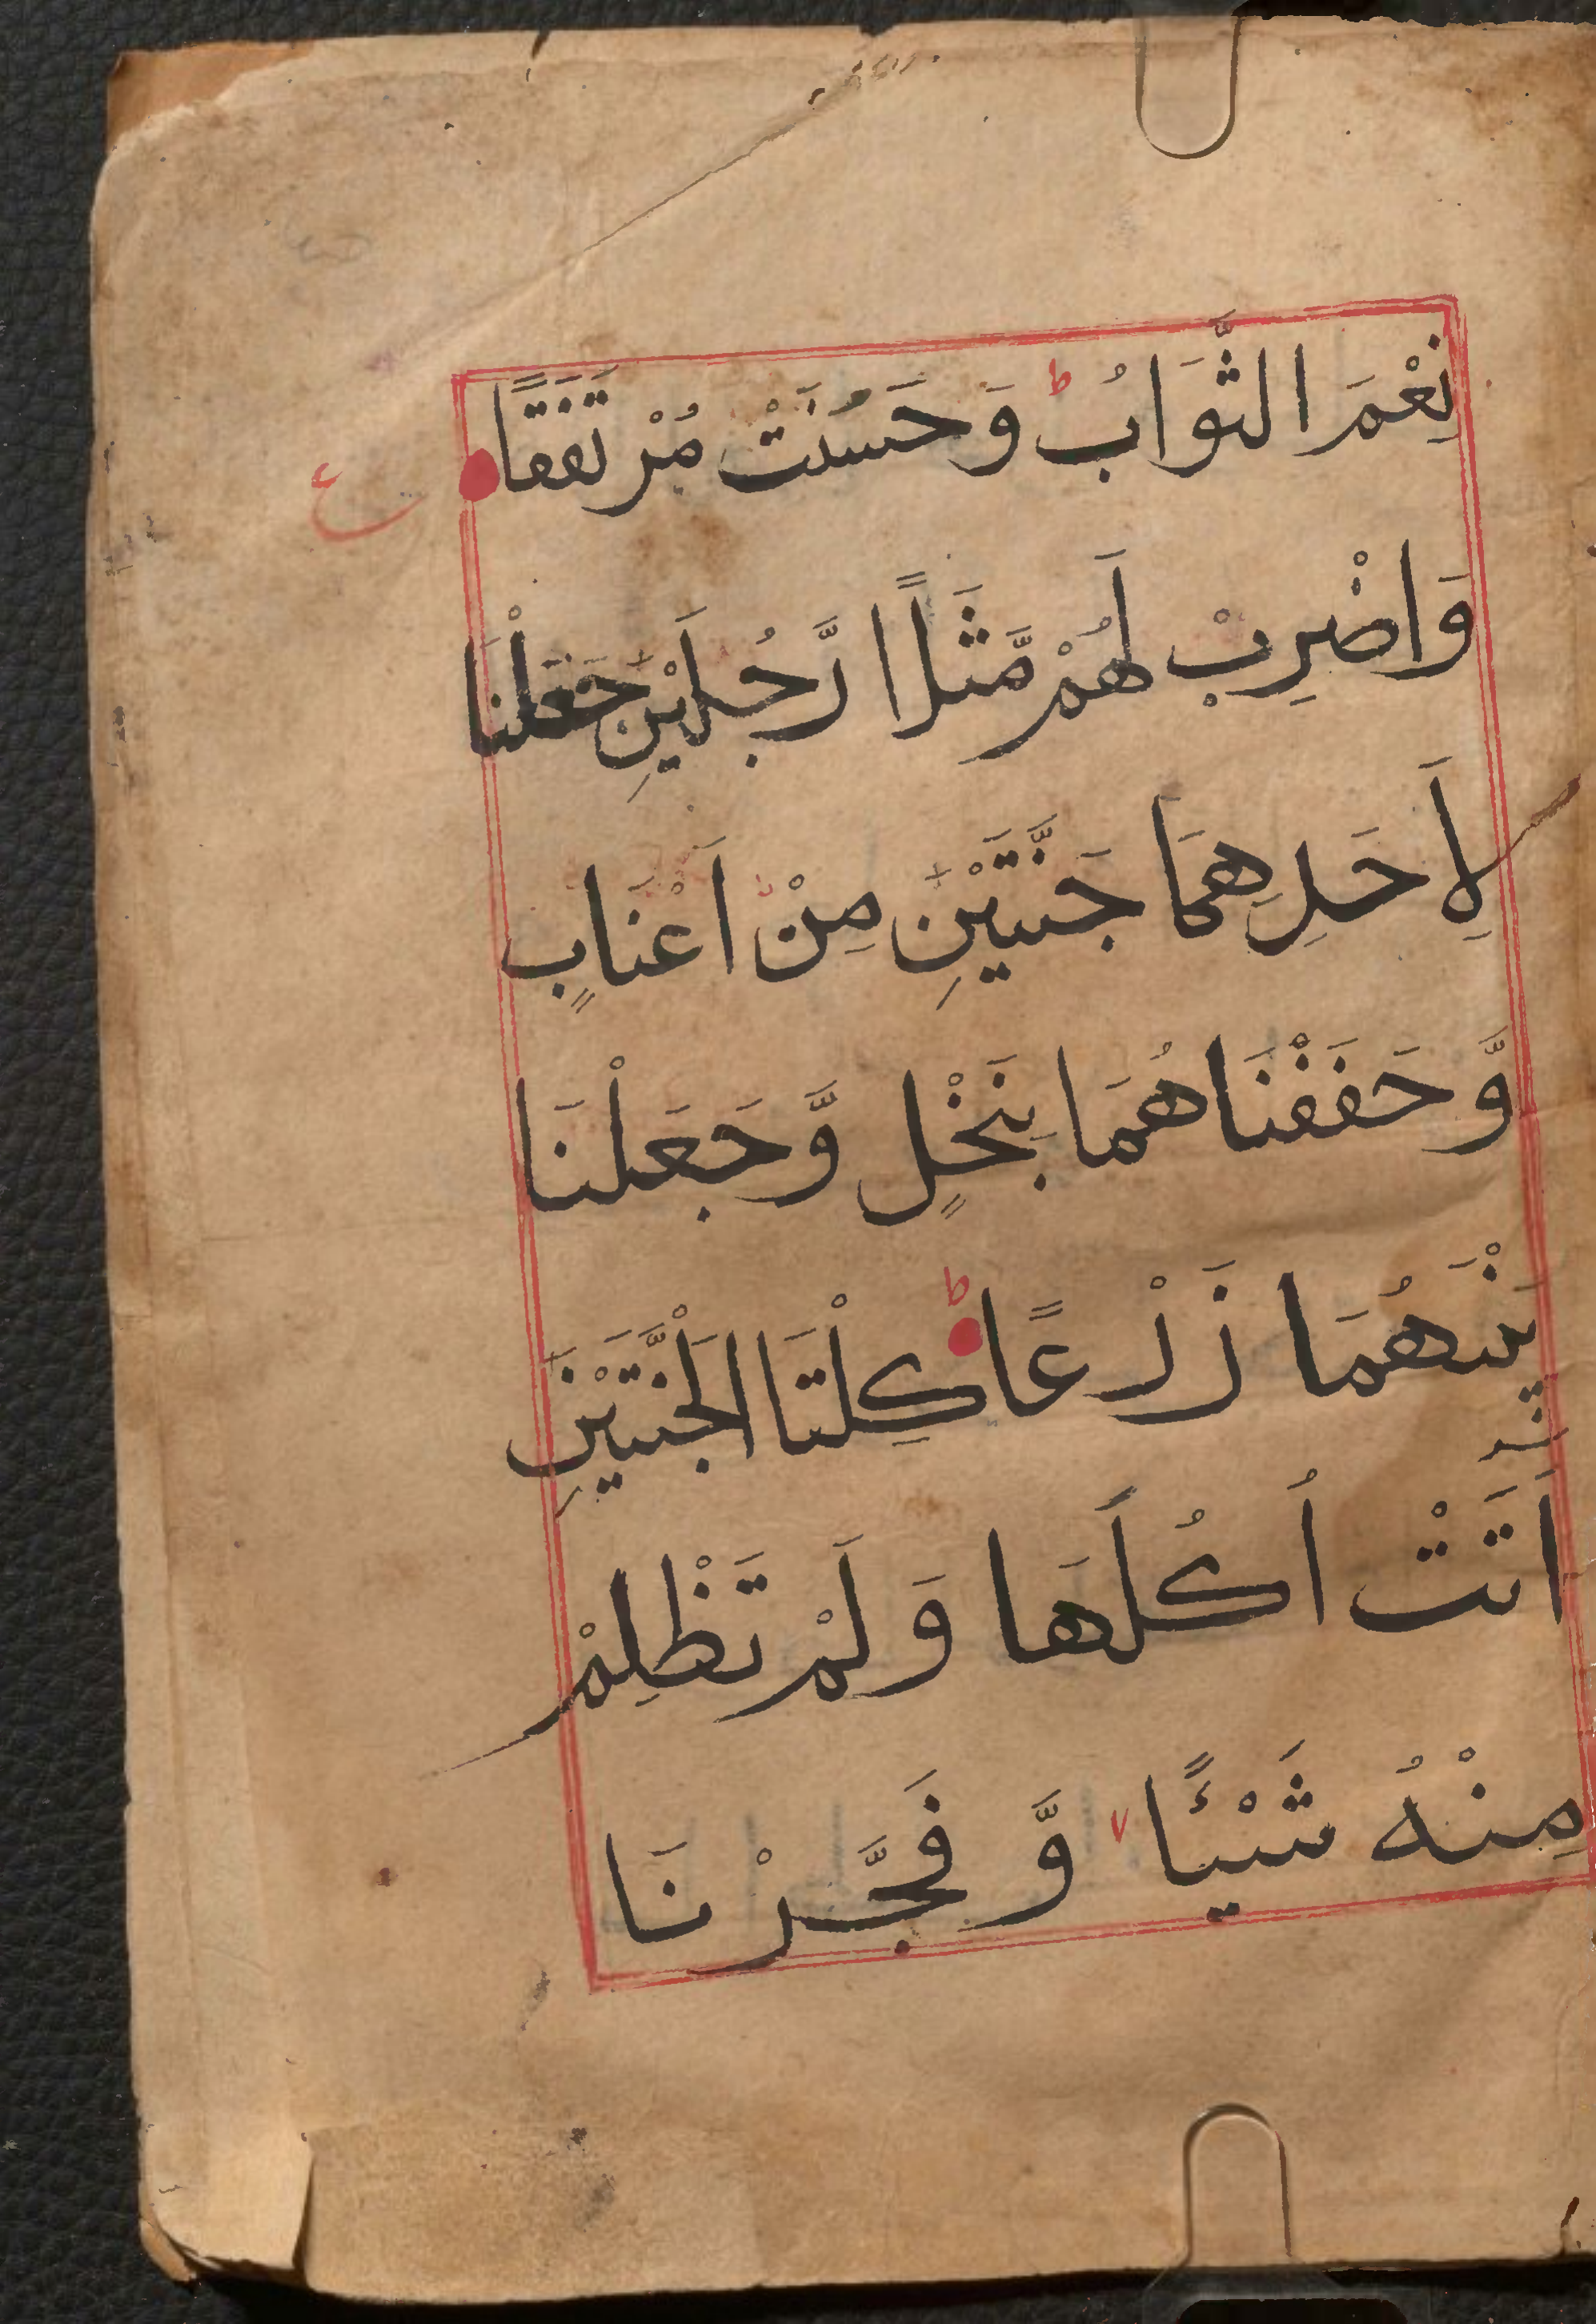 نِعْمَ الثَّوَابُ ط وَحَسُنَتْ مُرْتَفَقًا
ع
وَاضْرِبْ لَهُمْ مَّثَلًا رَّجُلَيْنِ جَعَلْنَا
لِأَحَدِهِمَا جَنَّتَيْنِ مِنْ اَعْنَابٍ
وَّحَفَفْنَاهُمَا بِنَخْلٍ وَّجَعَلْنَا
بَيْنَهُمَا زَرْعًا ط كِلْتَا الْجَنَّتَيْنِ
اَتَتْ اُكُلَهَا وَلَمْ تَظْلِمْ
مِنْهُ شَيْئًا وَّفَجَّرْنَا